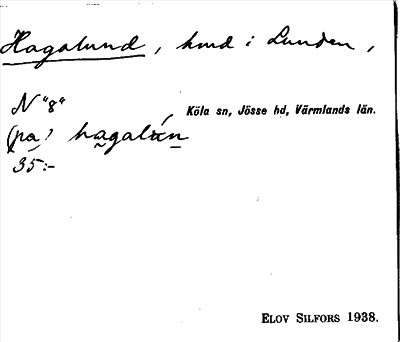 Hagalund, hmd i Lunden,
N "8"
Köla sn, Jösse hd, Värmlands län.
(på) hagalún
35:-
ELOV SILFORS 1938.